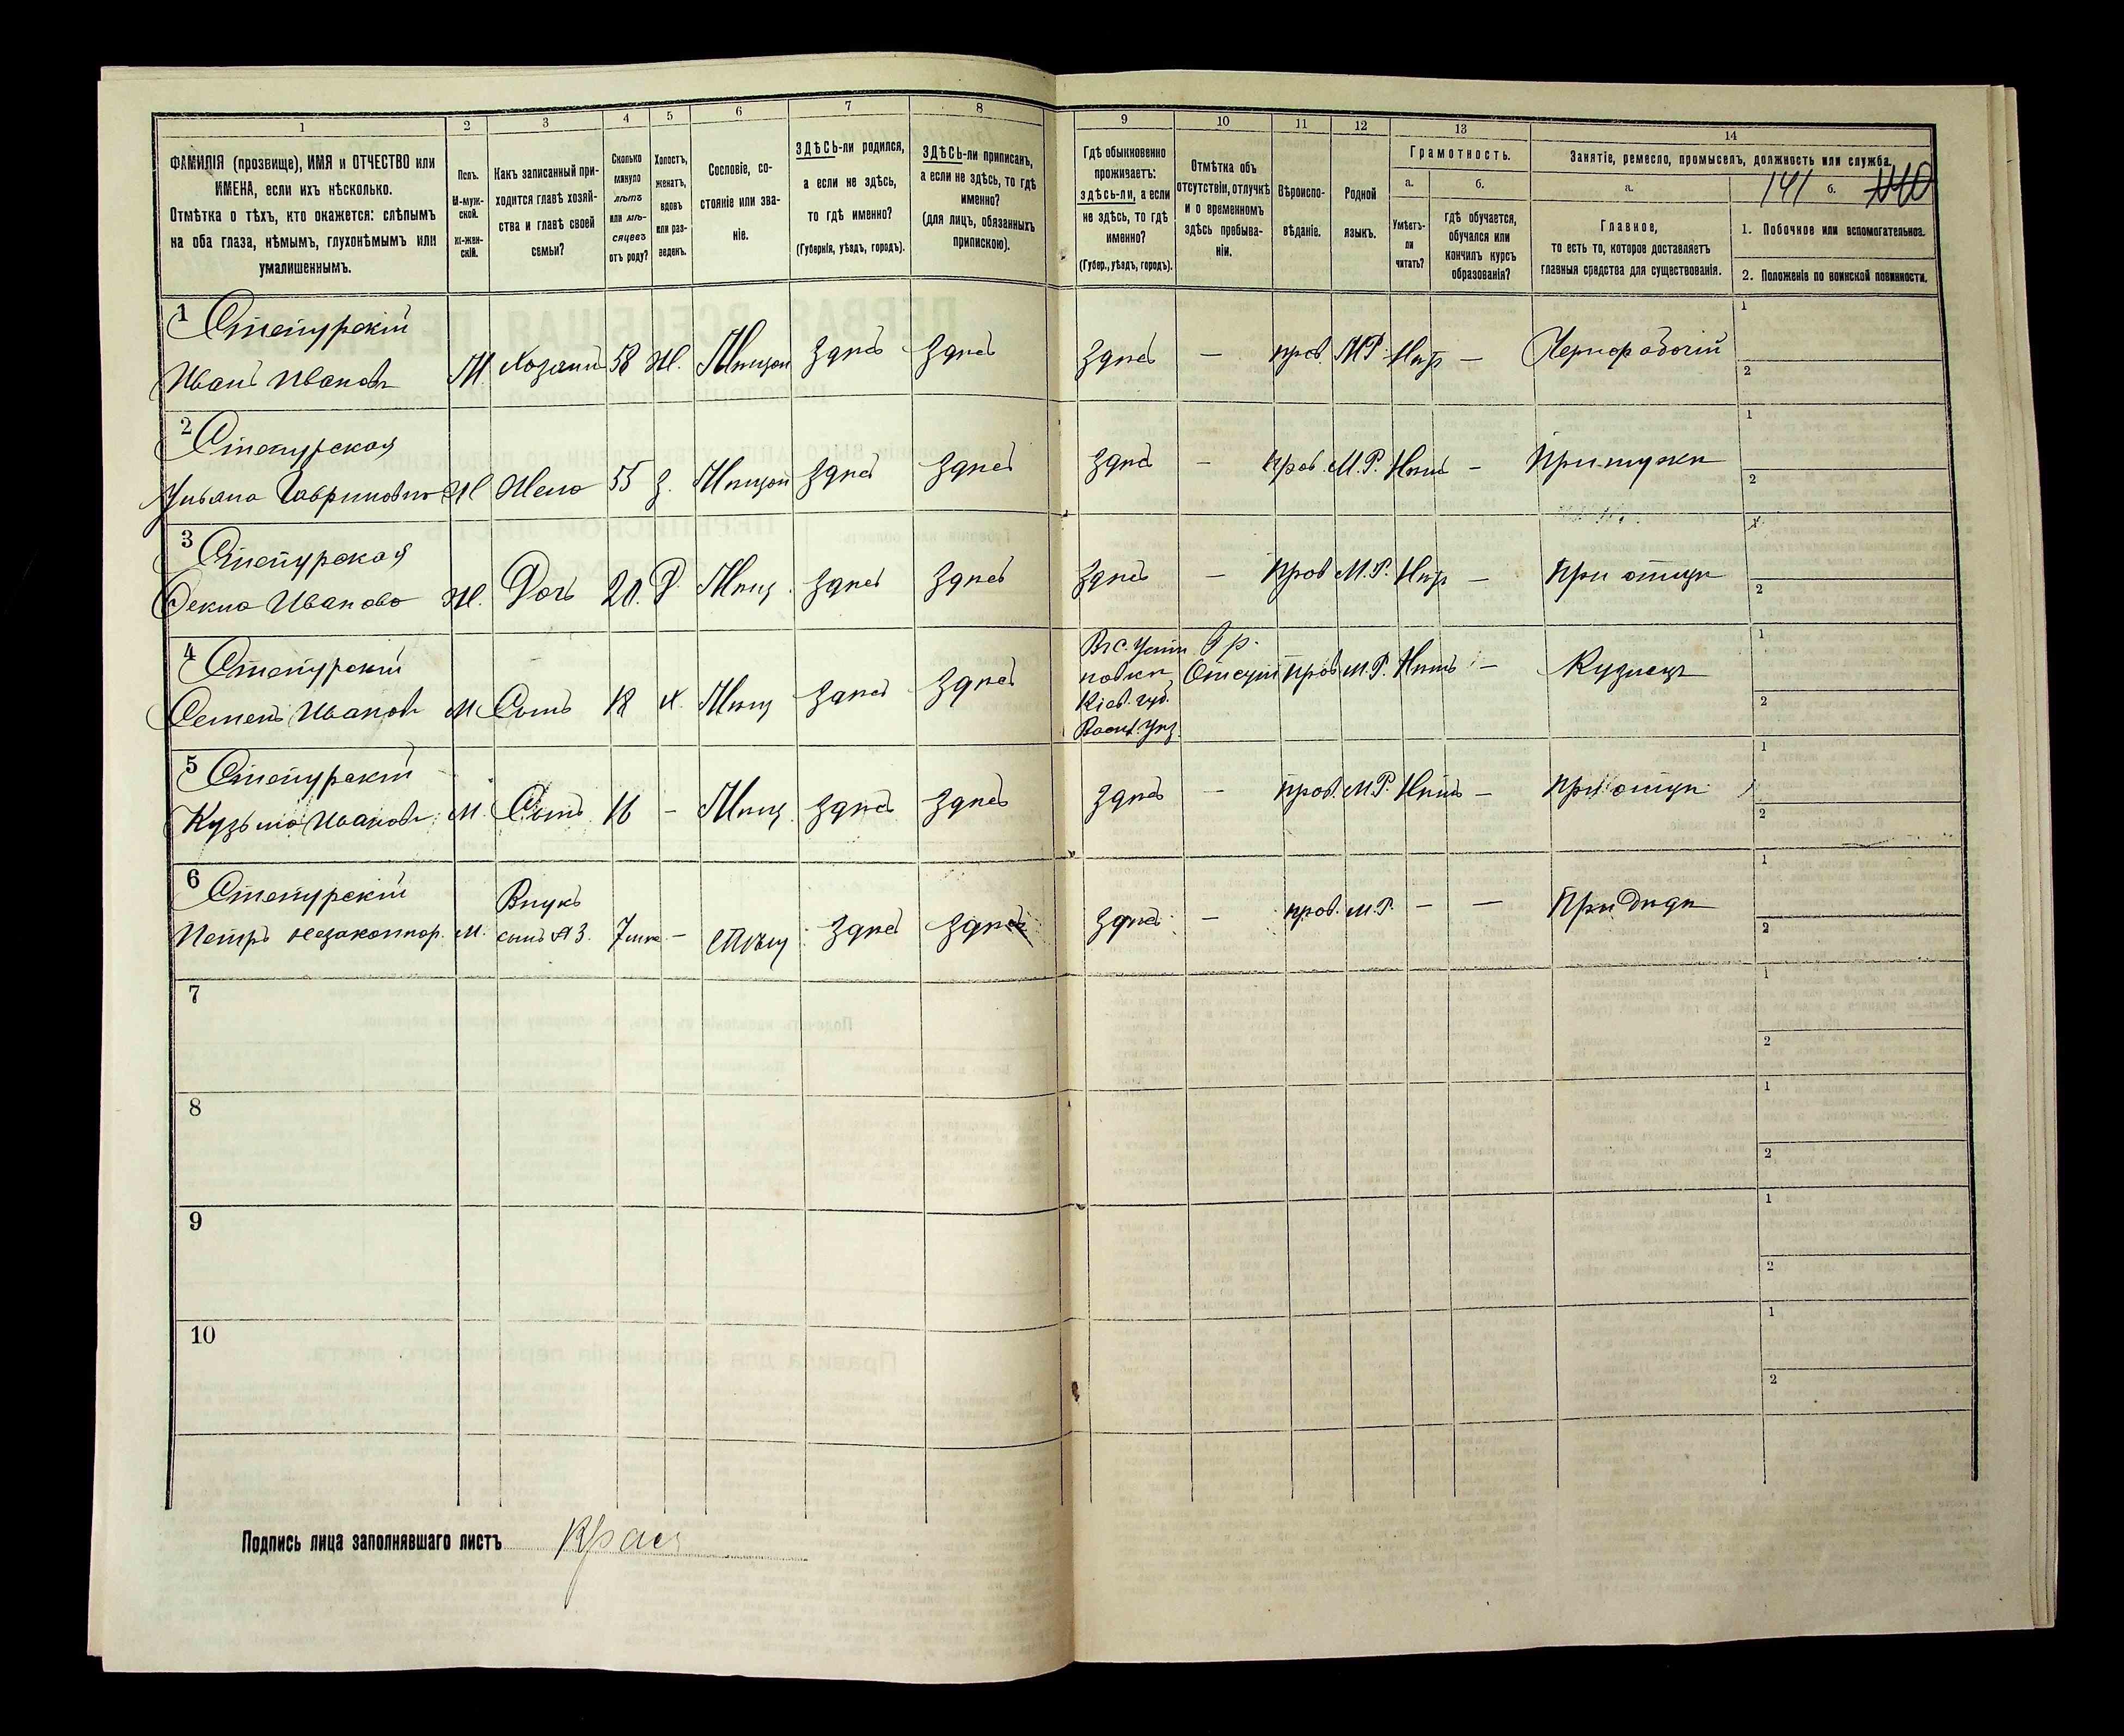 1
2
3
4
5
6
7
8
ФАМИЛІЯ (прозвище), ИМЯ и ОТЧЕСТВО или
ИМЕНА, если ихъ нѣсколько.
Отмѣтка о тѣхъ, кто окажется: слѣпымъ
на оба глаза, нѣмымъ, глухонѣмымъ или
умалишеннымъ.
Полъ.
М-муж-
ской.
Ж-жен-
скій.
Какъ записанный при-
ходится главѣ хозяй-
ства и главѣ своей
семьи?
Сколько
минуло
лѣтъ
или мѣ-
сяцевъ
отъ роду?
Холостъ,
женатъ,
вдовъ
или раз-
веденъ.
Сословіе, со-
стояніе или зва-
ніе.
ЗДѢСЬ-ли родился,
а если не здѣсь,
то гдѣ именно?
(Губернія, уѣздъ, городъ).
ЗДѢСЬ-ли приписанъ,
а если не здѣсь, то гдѣ
именно?
(для лицъ, обязанныхъ
припискою).
9
10
11
12
13
14
Гдѣ обыкновенно
проживаетъ:
здѣсь-ли, а если
не здѣсь, то гдѣ
именно?
(Губер., уѣздъ, городъ).
Отмѣтка объ
отсутствіи, отлучкѣ
и о временномъ
здѣсь пребыва-
ніи.
Вѣроиспо-
вѣданіе.
Родной
языкъ.
Грамотность.
а.
б.
Умѣетъ-
ли
читать?
гдѣ обучается,
обучался или
кончилъ курсъ
образованія?
Занятіе, ремесло, промыселъ, должность или служба.
а.
141 б.
Главное,
то есть то, которое доставляетъ
главныя средства для существованія.
1. Побочное или вспомогательное.
2. Положеніе по воинской повинности.
1
Иванъ Ивановъ М. Хозяинъ 58 Ж. Мѣщан Здѣсь Здѣсь
Здѣсь — прав. М.Р. Нѣтъ — Чернорабочій
1
2
2
Ульяна Гавриловна Ж Жена 55 З. Мѣщан Здѣсь Здѣсь
Здѣсь — Прав. М.Р. Нѣтъ — При мужѣ
1
2
3
Фекла Иванова Ж. Дочь 20. Д. Мѣщ. Здѣсь Здѣсь
Здѣсь — Прав М.Р. Нѣтъ — При отцѣ
1
2
4
Семенъ Ивановъ М Сынъ 18 Х. Мѣщ Здѣсь Здѣсь
Кіев. губ.
Васил. Уѣз.
Прав М.Р. Нѣтъ — Кузнецъ
1
2
5
Кузьма Ивановъ М. Сынъ 16 — Мѣщ. Здѣсь Здѣсь
Здѣсь — Прав. М.Р. Нѣтъ — При отцѣ
1
2
6
Внукъ
Петръ незаконнор. М. сынъ №3. — Мѣщ. Здѣсь Здѣсь
Здѣсь — прав. М.Р. — — При Дидѣ
1
2
7
1
2
8
1
2
9
1
2
10
1
2
Подпись лица заполнявшаго листъ